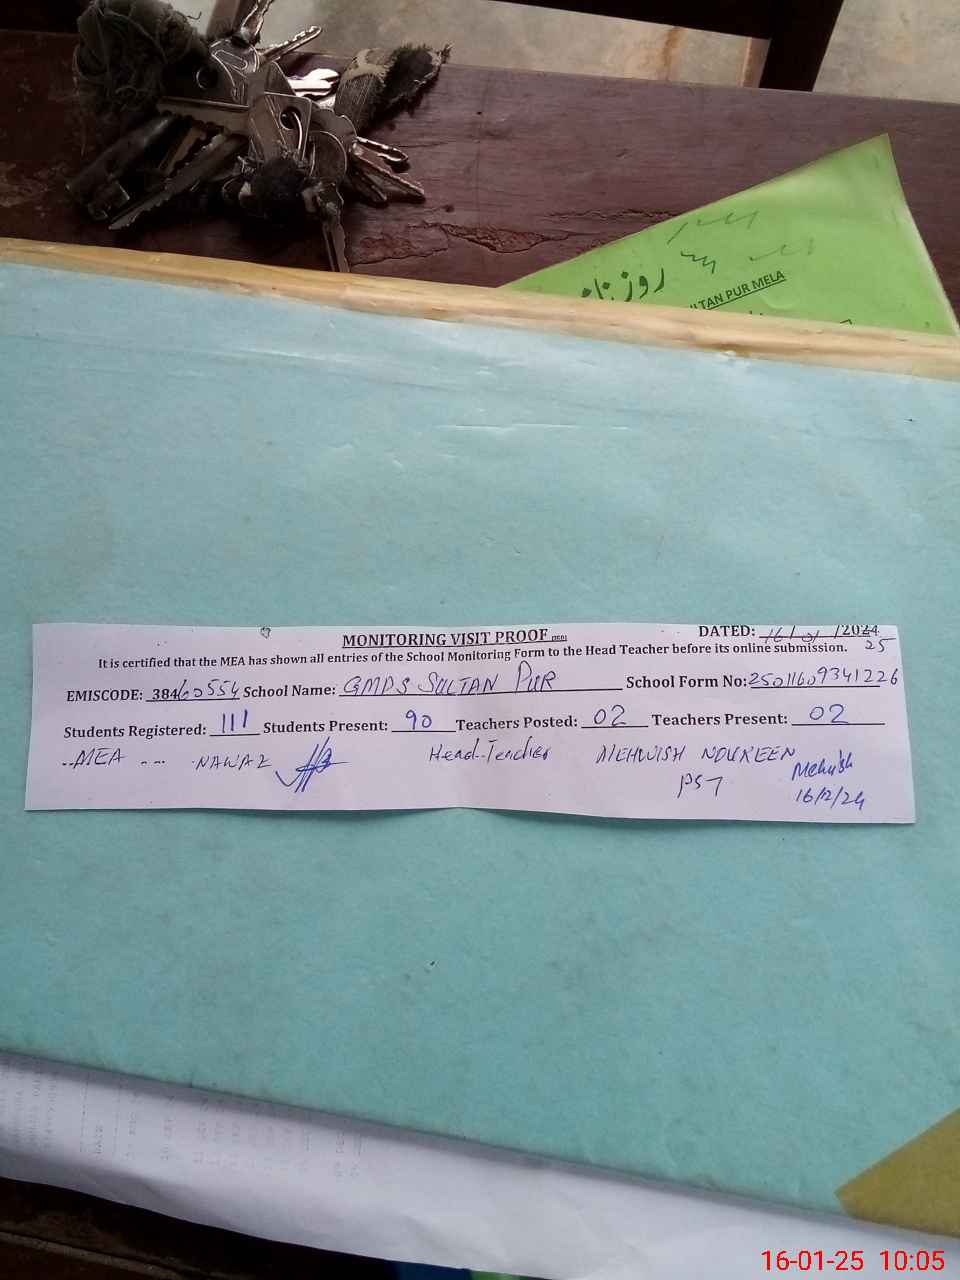 روزنا
LTAN PUR MELA
MONITORING VISIT PROOF
DATED: 16/01/2024 25
It is certified that the MEA has shown all entries of the School Monitoring Form to the Head Teacher before its online submission.
EMISCODE: 38460554 School Name: GMPS SULTAN PUR School Form No: 25011609341226
Students Registered: 111 Students Present: 90 Teachers Posted: 02 Teachers Present: 02
..MEA .... NAWAZ Head..Teacher MEHWISH NOUREEN Mehwish
PST 16/12/24
16-01-25 10:05